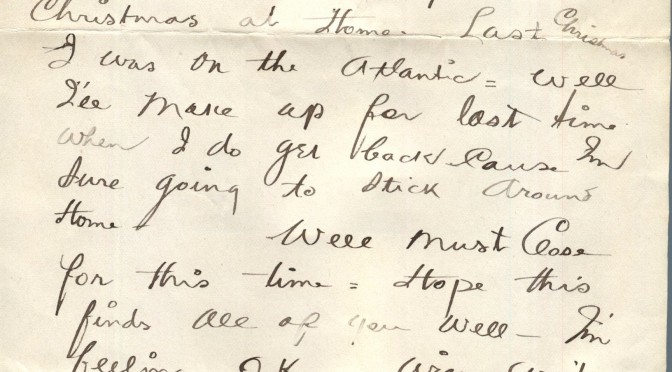 Christmas at Home. Last Christmas
I was on the Atlantic = Well
I'll make up for lost time
when I do get back Cause I'm
Sure going to stick around
Home. Well must Close
for this time = Hope this
finds all of you well - I'm
feeling O.K.